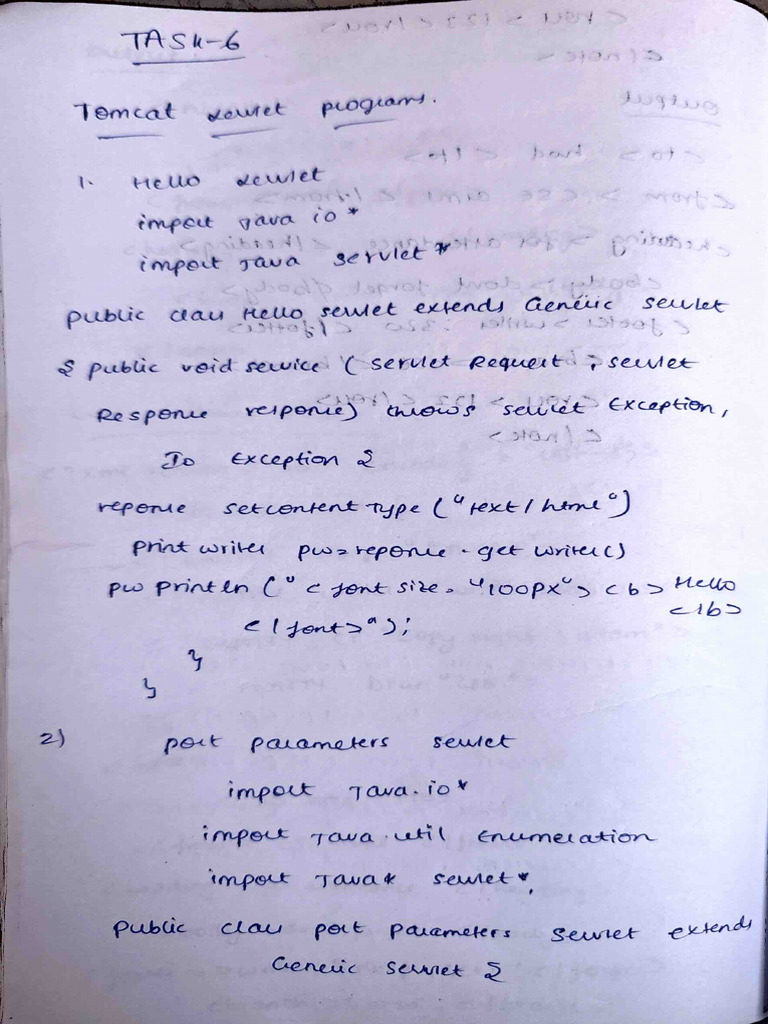 TASK-6
Tomcat servlet programs.
1. Hello servlet
import Java io *
import Java servlet *
public class Hello servlet extends Generic servlet
{ public void service ( servlet Request , servlet
Response response) throws servlet Exception,
Io Exception {
reponse setcontent Type ("text / html")
print writer pw = reponse . get writer ()
pw println (" < font size = "100px"> <b> Hello
</b>
</font>");
}
}
2) port parameters servlet
import Java.io *
import Java.util Enumeration
import Java* servlet *;
public class port parameters servlet extends
Generic servlet {